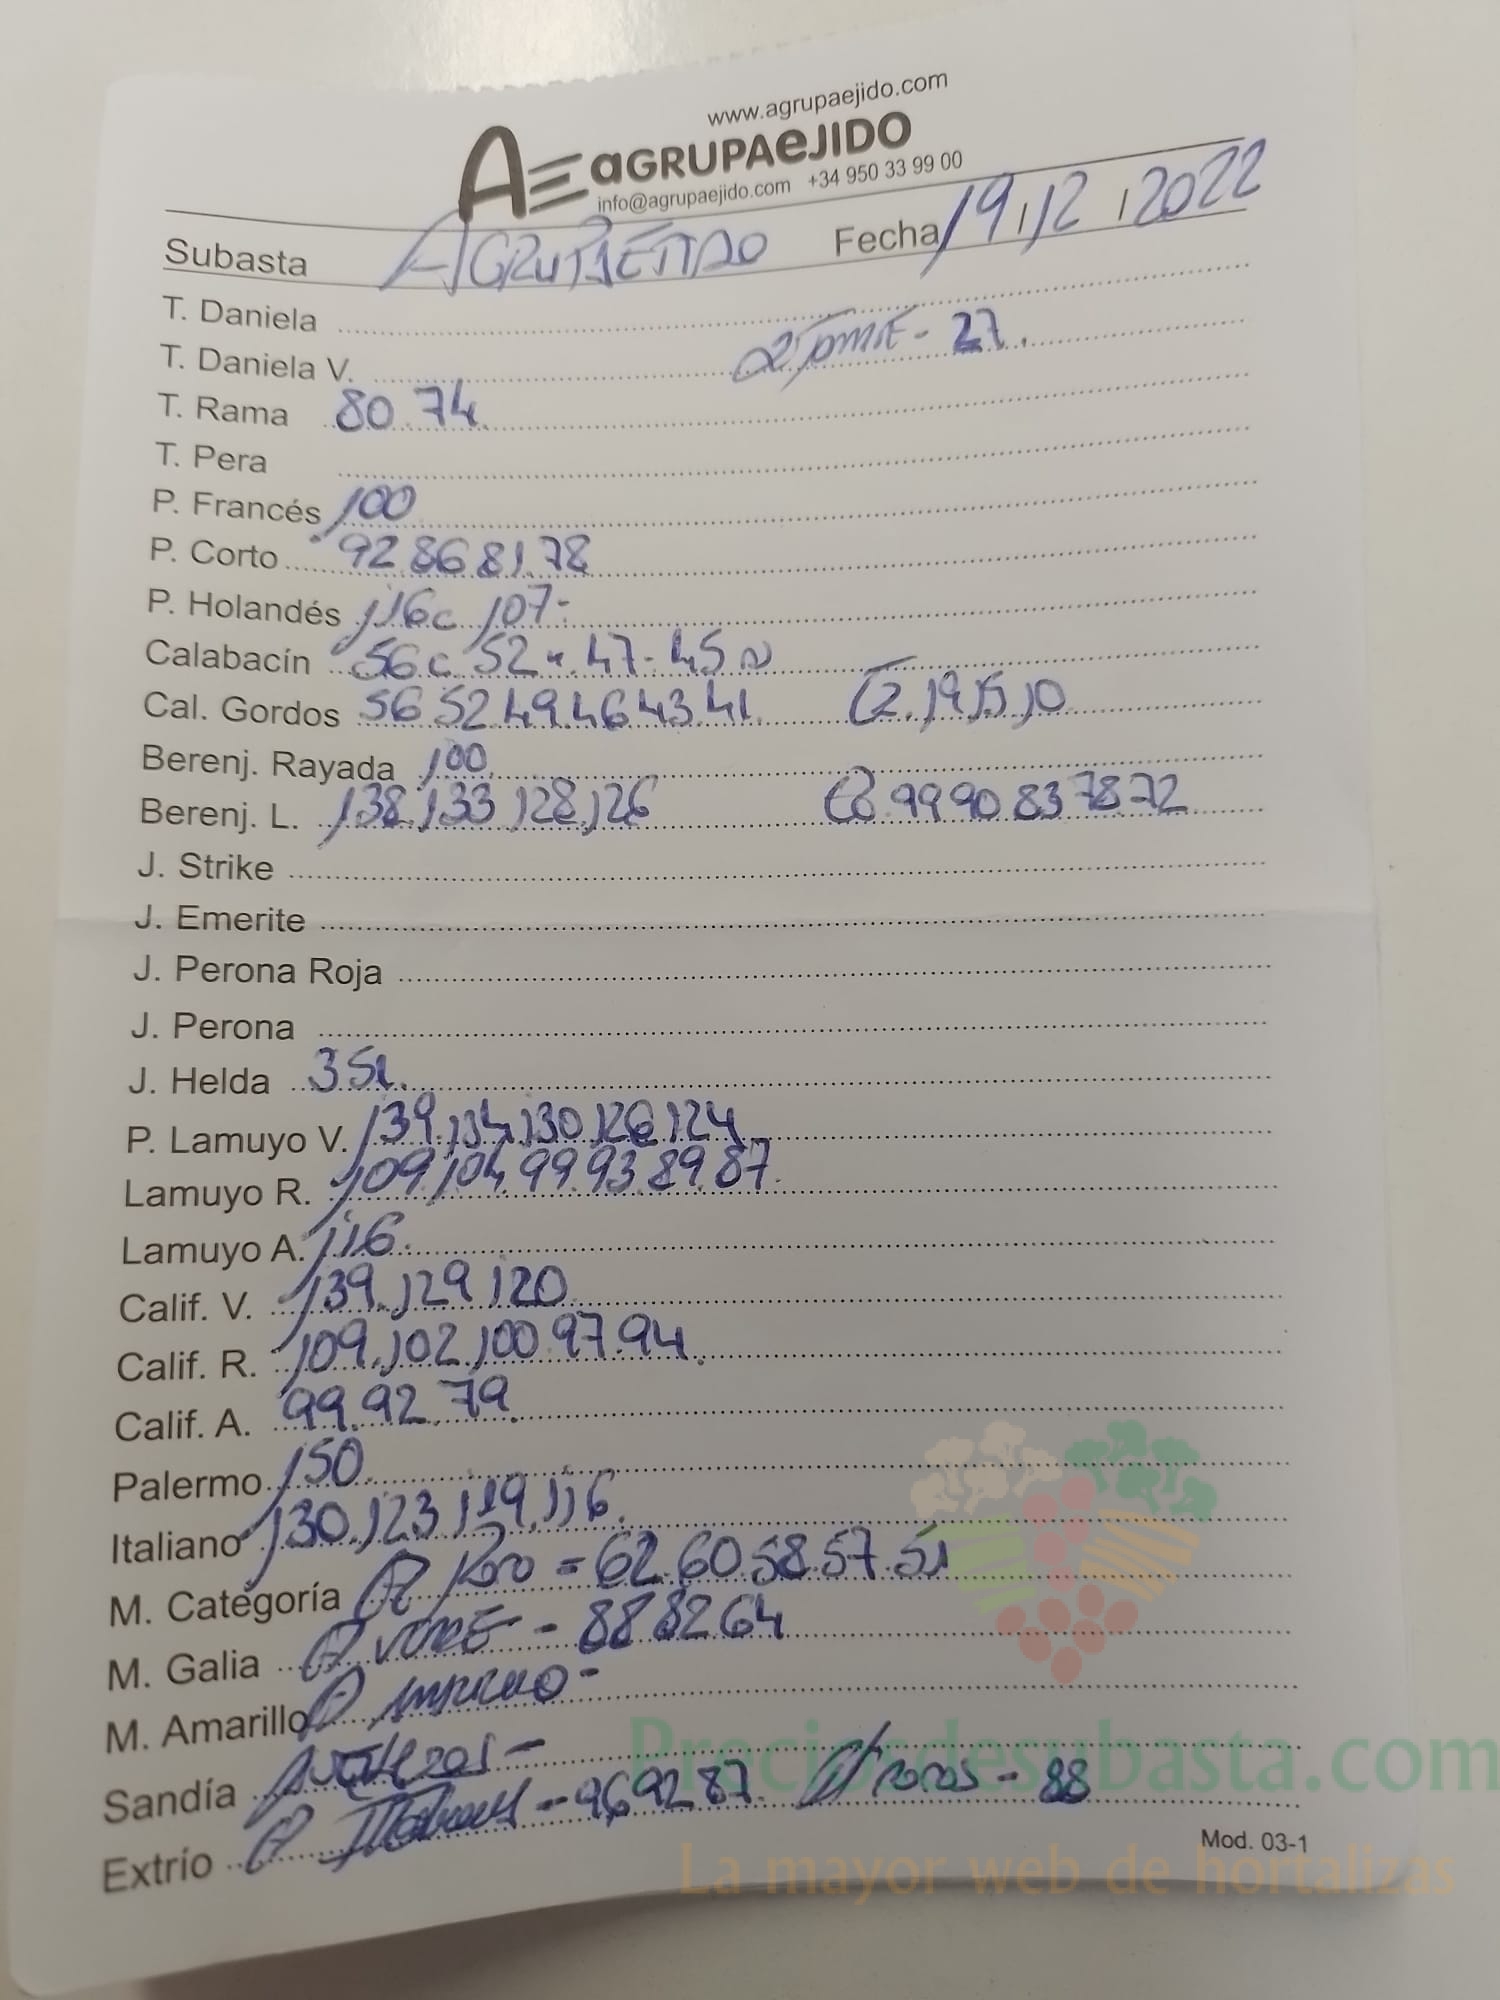 www.agrupaejido.com
AE aGRUPAeJIDO
info@agrupaejido.com +34 950 33 99 00
Subasta AGRUPAEJIDO Fecha 19/12/2022
T. Daniela
T. Daniela V. - 27.
T. Rama 80.74.
T. Pera
P. Francés 100
P. Corto 92 86 81.78
P. Holandés 116c 107-
Calabacín 56c 52 47-45
Cal. Gordos 56 52 49.46 43 41. 19 15 10
Berenj. Rayada 100
Berenj. L. 138.133 128.126 99 90 83 78 72
J. Strike
J. Emerite
J. Perona Roja
J. Perona
J. Helda 351.
P. Lamuyo V. 139.134.130.126.124
Lamuyo R. 109.104.99.93.89.87.
Lamuyo A. 116.
Calif. V. 139.129 120
Calif. R. 109.102.100.97.94.
Calif. A. 99.92.79.
Palermo 150.
Italiano 130.123.119.116.
M. Categoría = 62.60.58.57.51
M. Galia - 88 82 64
M. Amarillo
Sandía
Extrío - 96 92 87. - 88
Mod. 03-1
Preciosdesubasta.com
La mayor web de hortalizas